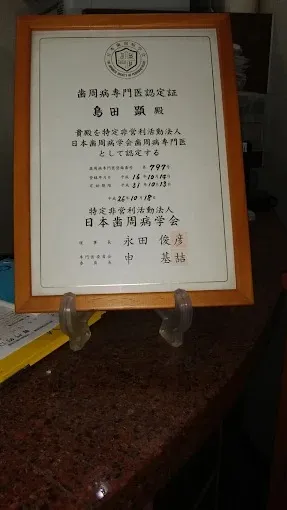 歯周病専門医認定証
島田 顕 殿
貴殿を特定非営利活動法人
日本歯周病学会歯周病専門医
として認定する
第 797 号
平成 16年10月14日
平成 31年10月13日
平成 26年10月18日
特定非営利活動法人
日本歯周病学会
理事長 永田 俊彦
専門医委員会
委員長 申 基喆